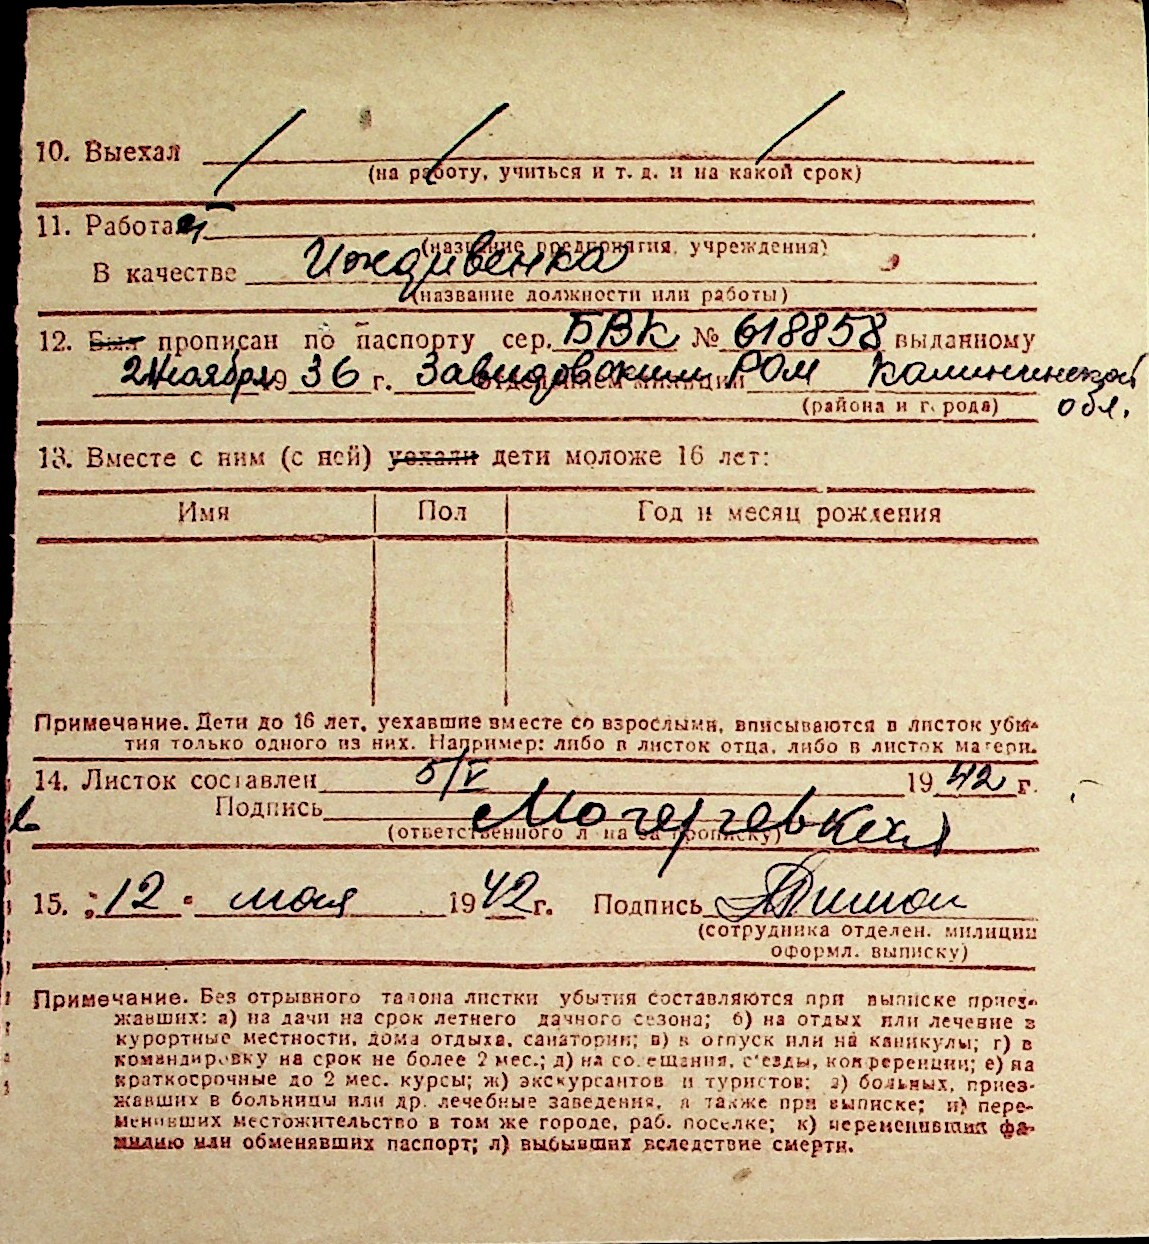 10. Выехал / / /
(на работу, учиться и т. д. и на какой срок)
11. Работает —
(название предприятия, учреждения)
В качестве Иждивенка
(название должности или работы)
12. Был прописан по паспорту сер. БВК № 618858 выданному
24 ноября 1936 г. Завидовским отделением милиции РОМ Калининской
(района и города) обл.
13. Вместе с ним (с ней) уехали дети моложе 16 лет:
Имя Пол Год и месяц рождения
Примечание. Дети до 16 лет, уехавшие вместе со взрослыми, вписываются в листок убы-
тия только одного из них. Например: либо в листок отца, либо в листок матери.
14. Листок составлен 5/V 1942 г.
Подпись
(ответственного лица за прописку)
15. "12" мая 1942 г. Подпись
(сотрудника отделен. милиции
оформл. выписку)
Примечание. Без отрывного талона листки убытия составляются при выписке приез-
жавших: а) на дачи на срок летнего дачного сезона; б) на отдых или лечение в
курортные местности, дома отдыха, санатории; в) в отпуск или на каникулы; г) в
командировку на срок не более 2 мес.; д) на совещания, с'езды, конференции; е) на
краткосрочные до 2 мес. курсы; ж) экскурсантов и туристов; з) больных, приез-
жавших в больницы или др. лечебные заведения, а также при выписке; и) пере-
менивших местожительство в том же городе, раб. поселке; к) переменивших фа-
милию или обменявших паспорт; л) выбывших вследствие смерти.